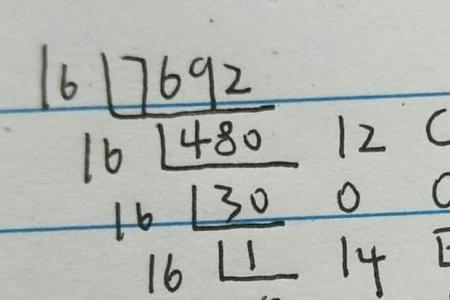 16 7692
16 480 12 C
16 30 0 0
16 1 14 E